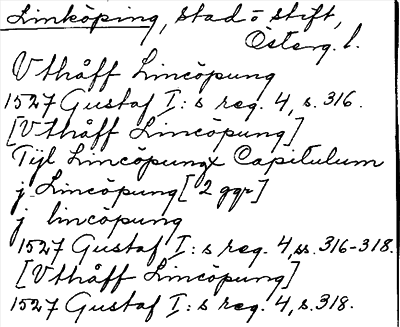 Linköping, stad o stift,
Österg. l.
Vthåff Lincöpung
1527 Gustaf I:s reg. 4, s. 316.
[Vthåff Lincöpung]
Tijl Lincöpungx Capitulum
j Lincöpung [2 ggr]
j lincöpung
1527 Gustaf I:s reg. 4, ss. 316-318.
[Vthåff Lincöpung]
1527 Gustaf I:s reg. 4, s. 318.